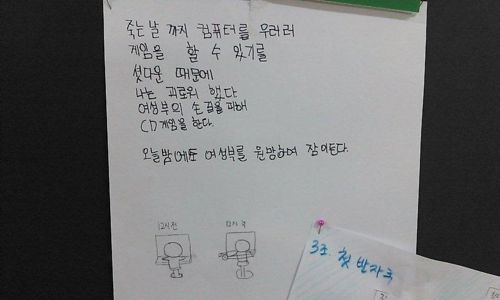 죽는날 까지 컴퓨터를 우러러
게임을 할 수 있기를
셧다운 때문에
나는 괴로워 했다
여성부의 손길을 피해
CD게임을 한다.
오늘밤에도 여성부를 원망하며 잠이든다.
12시전
12시 후
3조 첫 발자국